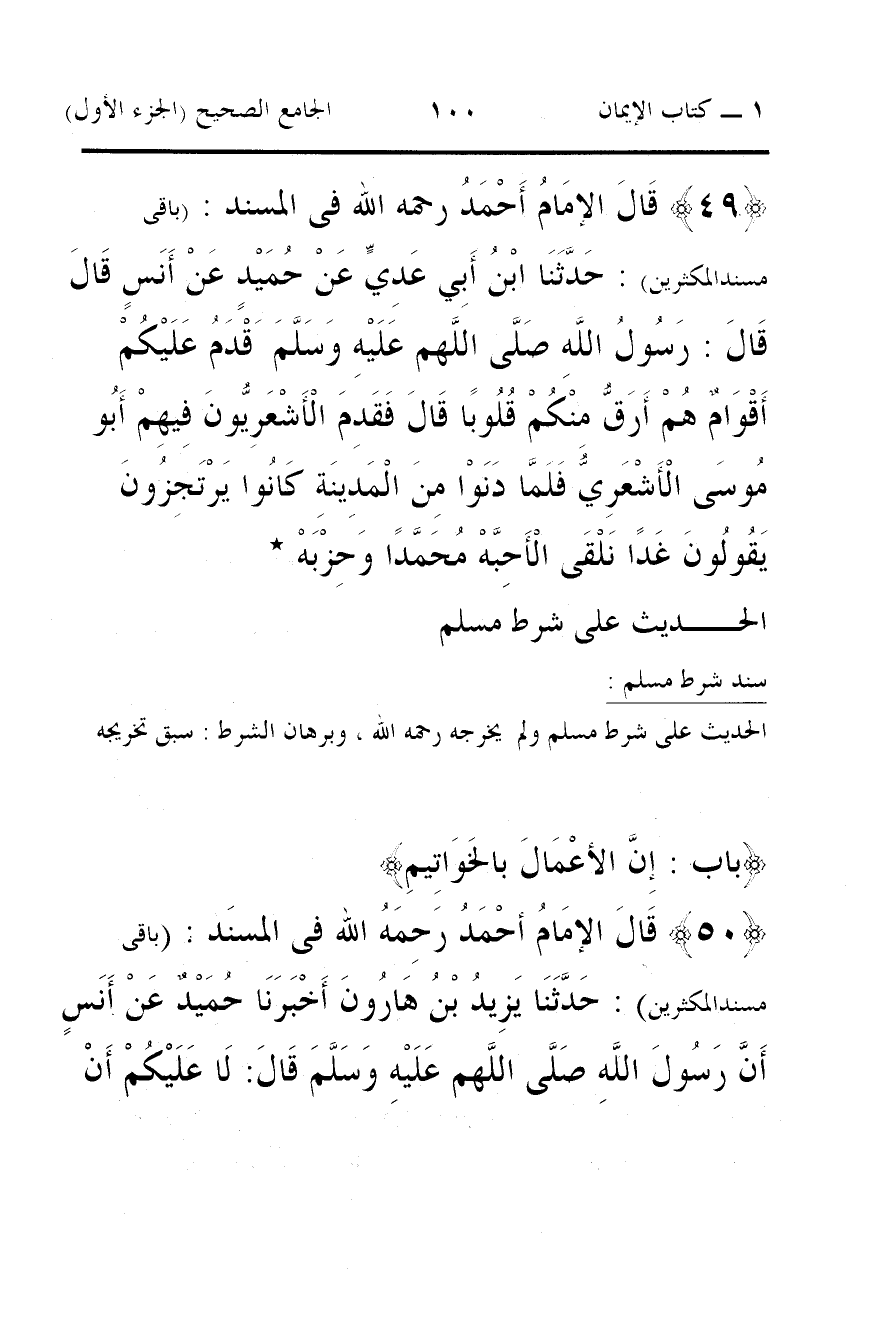 ١ ــ كتاب الإيمان ١٠٠ الجامع الصحيح (الجزء الأول)
﴿٤٩﴾ قَالَ الإِمَامُ أَحْمَدُ رحمه الله فى المسند : (باقى
مسندالمكثرين) : حَدَّثَنَا ابْنُ أَبِي عَدِيٍّ عَنْ حُمَيْدٍ عَنْ أَنَسٍ قَالَ
قَالَ : رَسُولُ اللَّهِ صَلَّى اللَّهم عَلَيْهِ وَسَلَّمَ َقْدَمُ عَلَيْكُمْ
أَقْوَامٌ هُمْ أَرَقُّ مِنْكُمْ قُلُوبًا قَالَ فَقَدِمَ الْأَشْعَرِيُّونَ فِيهِمْ أَبُو
مُوسَى الْأَشْعَرِيُّ فَلَمَّا دَنَوْا مِنَ الْمَدِينَةِ كَانُوا يَرْتَجِزُونَ
يَقُولُونَ غَدًا نَلْقَى الْأَحِبَّهْ مُحَمَّدًا وَحِزْبَهْ *
الحـــــديث على شرط مسلم
سند شرط مسلم :
الحديث على شرط مسلم ولم يخرجه رحمه الله ، وبرهان الشرط : سبق تخريجه
﴿باب : إِنَّ الأعْمَالَ بالخَوَاتِيمِ﴾
﴿٥٠﴾ قَالَ الإِمَامُ أحْمَدُ رَحِمَهُ الله فى المسنَد : (باقى
مسندالمكثرين) : حَدَّثَنَا يَزِيدُ بْنُ هَارُونَ أَخْبَرَنَا حُمَيْدٌ عَنْ أَنَسٍ
أَنَّ رَسُولَ اللَّهِ صَلَّى اللَّهم عَلَيْهِ وَسَلَّمَ قَالَ: لَا عَلَيْكُمْ أَنْ